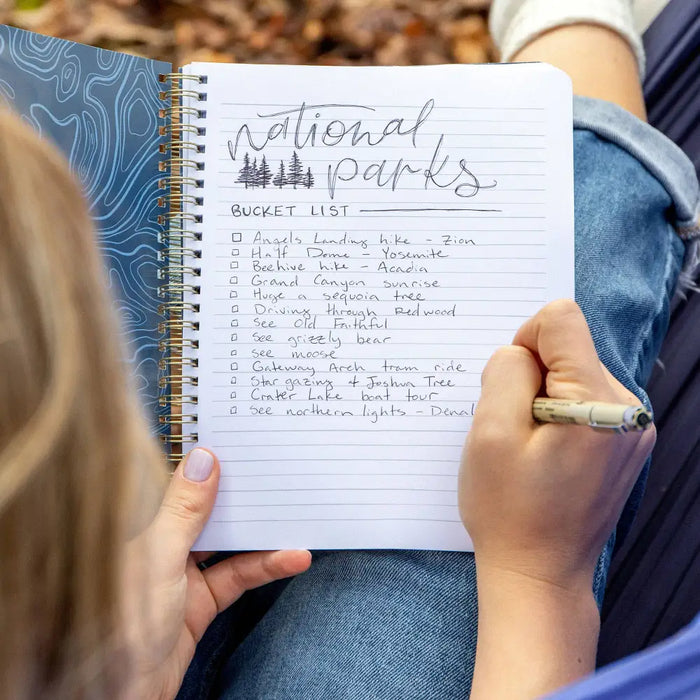 national
parks
BUCKET LIST
Angels Landing hike - Zion
Half Dome - Yosemite
Beehive hike - Acadia
Grand Canyon sunrise
Huge a sequoia tree
Driving through Redwood
See Old Faithful
See grizzly bear
See moose
Gateway Arch tram ride
Star gazing & Joshua Tree
Crater Lake boat tour
See northern lights - Denal